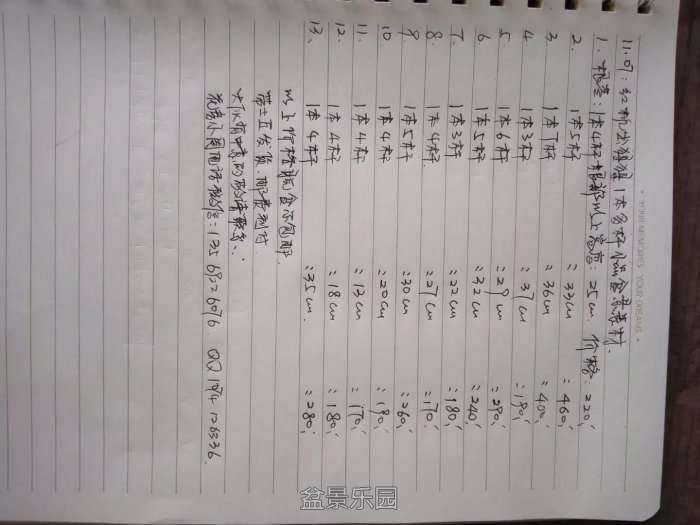 11.07: 红
1本多杆小品盆景素材.
1. 规格: 1本4杆根部以上高: 25cm 价格: 220,
2. 1本5杆 : 33cm : 460,
3. 1本7杆 : 36cm : 400,
4. 1本3杆 : 37cm : 190,
5 1本6杆 : 29cm : 290,
6 1本5杆 : 32cm : 240,
7. 1本3杆 : 22cm : 180,
8. 1本4杆 : 27cm : 170,
9. 1本5杆 : 30cm : 260,
10. 1本4杆 : 20cm : 190,
11. 1本4杆 : 13cm : 170,
12. 1本4杆 : 18cm : 180,
13. 1本4杆 : 35cm. : 280,
以上价格 不包邮.
带土互发货. 邮费到付
联系:
电话微信: QQ
YOUR MEMORIES YOUR DREAMS
盆景乐园